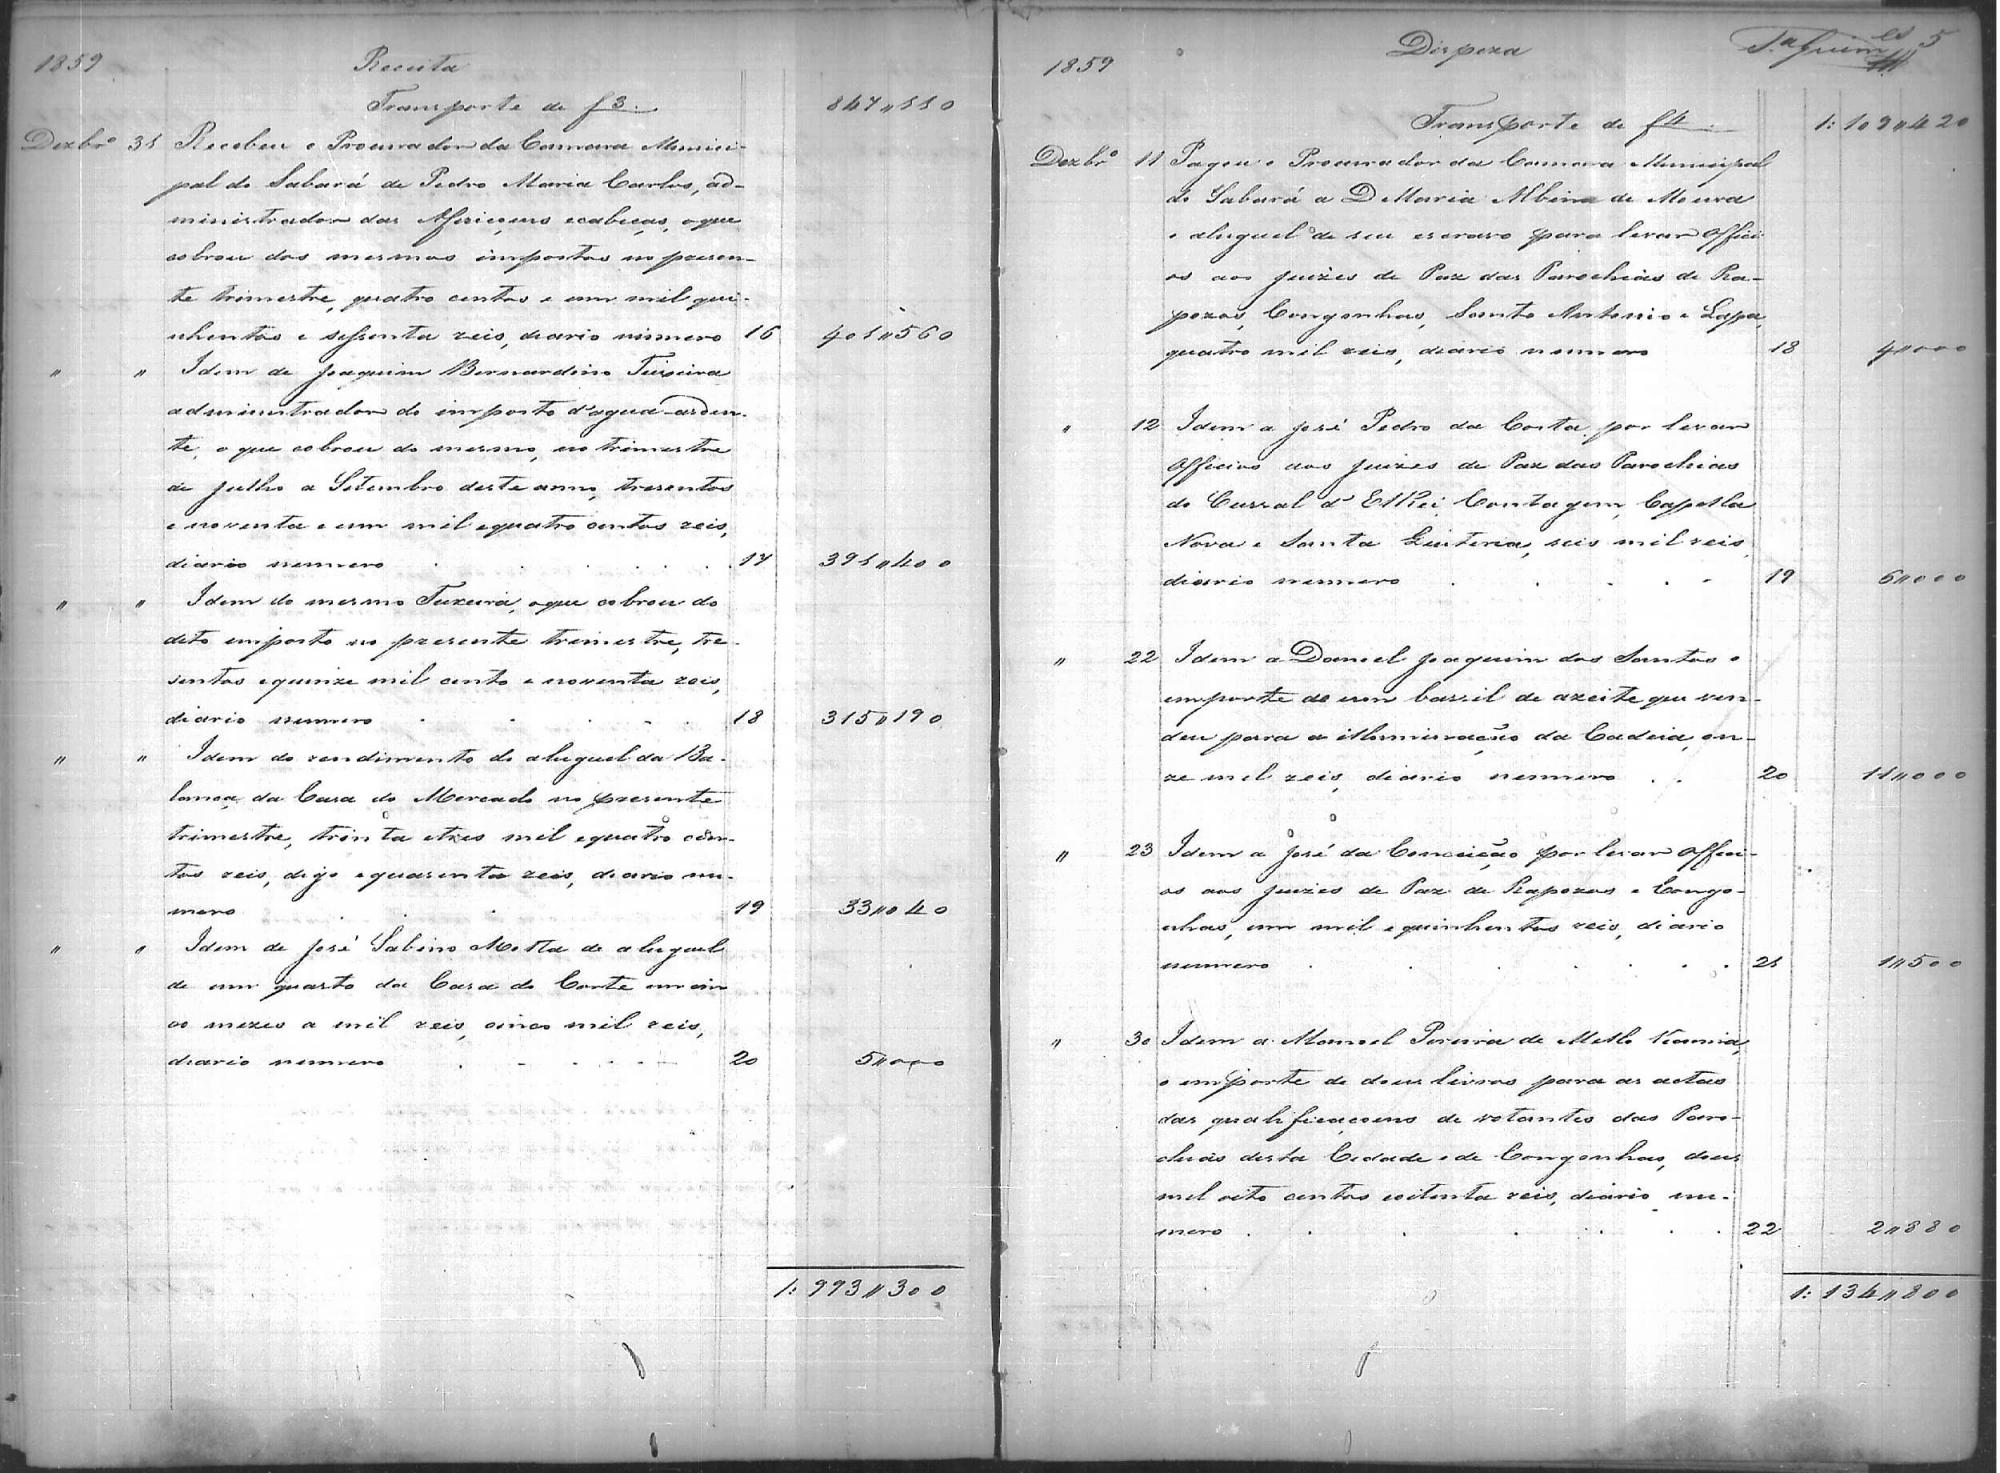 1859 Receita
Transporte de f 3. 847"110
Dezbrº 31 Recebeu o Procurador da Camara Munici-
pal do Sabará de Pedro Maria Carlos, ad-
ministrador das Afericoens e cabeças, o que
cobrou dos mesmos impostos no presen-
te trimestre, quatro centos e um mil qui-
nhentos e sessenta reis, diario numero 16 401"560
" " Idem de Joaquim Bernardino Teixeira
administrador do imposto d'agua-arden-
te, o que cobrou do mesmo, no trimestre
de Julho a Setembro deste anno, tresentos
e noventa e um mil e quatro centos reis,
diario numero . . . . . 17 391"400
" " Idem do mesmo Teixeira, o que cobrou do
dito imposto no presente trimestre, tre-
sentos e quinze mil cento e noventa reis,
diario numero . . . . . 18 315"190
" " Idem do rendimento do aluguel da Ba-
lança da Casa do Mercado no presente
trimestre, trinta e tres mil e quatro cen-
tos reis, digo e quarenta reis, diario nu-
mero . . . 19 33"040
" " Idem de José Sabino Motta de aluguel
de um quarto da Casa do Corte em cin
co mezes a mil reis, cinco mil reis,
diario numero . . . . . 20 5"000
1:993"300
1859 Dispeza 5
Transporte de f 4. 1:109"420
Dezbrº 11 Pagou o Procurador da Camara Municipal
do Sabará a D Maria Albina de Moura
o aluguel de seu escravo para levar Offici
os aos Juizes de Paz das Parochias de Ra-
pozos, Congonhas, Santo Antonio e Lapa,
quatro mil reis, diario numero 18 4"000
" 12 Idem a José Pedro da Costa por levar
Officios aos Juizes de Paz das Parochias
do Curral d'ElRei, Contagem, Capella
Nova e Santa Quiteria, seis mil reis,
diario numero . . . . 19 6"000
" 22 Idem a Daniel Joaquim dos Santos o
importe de um barril de azeite que ven-
deu para a illuminação da Cadeia, on-
ze mil reis, diario numero . . 20 11"000
" 23 Idem a José da Conceição por levar Offici-
os aos Juizes de Paz de Rapozos e Congo-
nhas, um mil e quinhentos reis, diario
numero . . . . . . 21 1"500
" 30 Idem a Manoel Pereira de Mello Vianna,
o importe de dous livros para as actas
das qualificacoens de votantes das Paro-
chias desta Cidade e de Congonhas, dous
mil oito centos e oitenta reis, diario nu-
mero . . . . . . 22 2"880
1:134"800